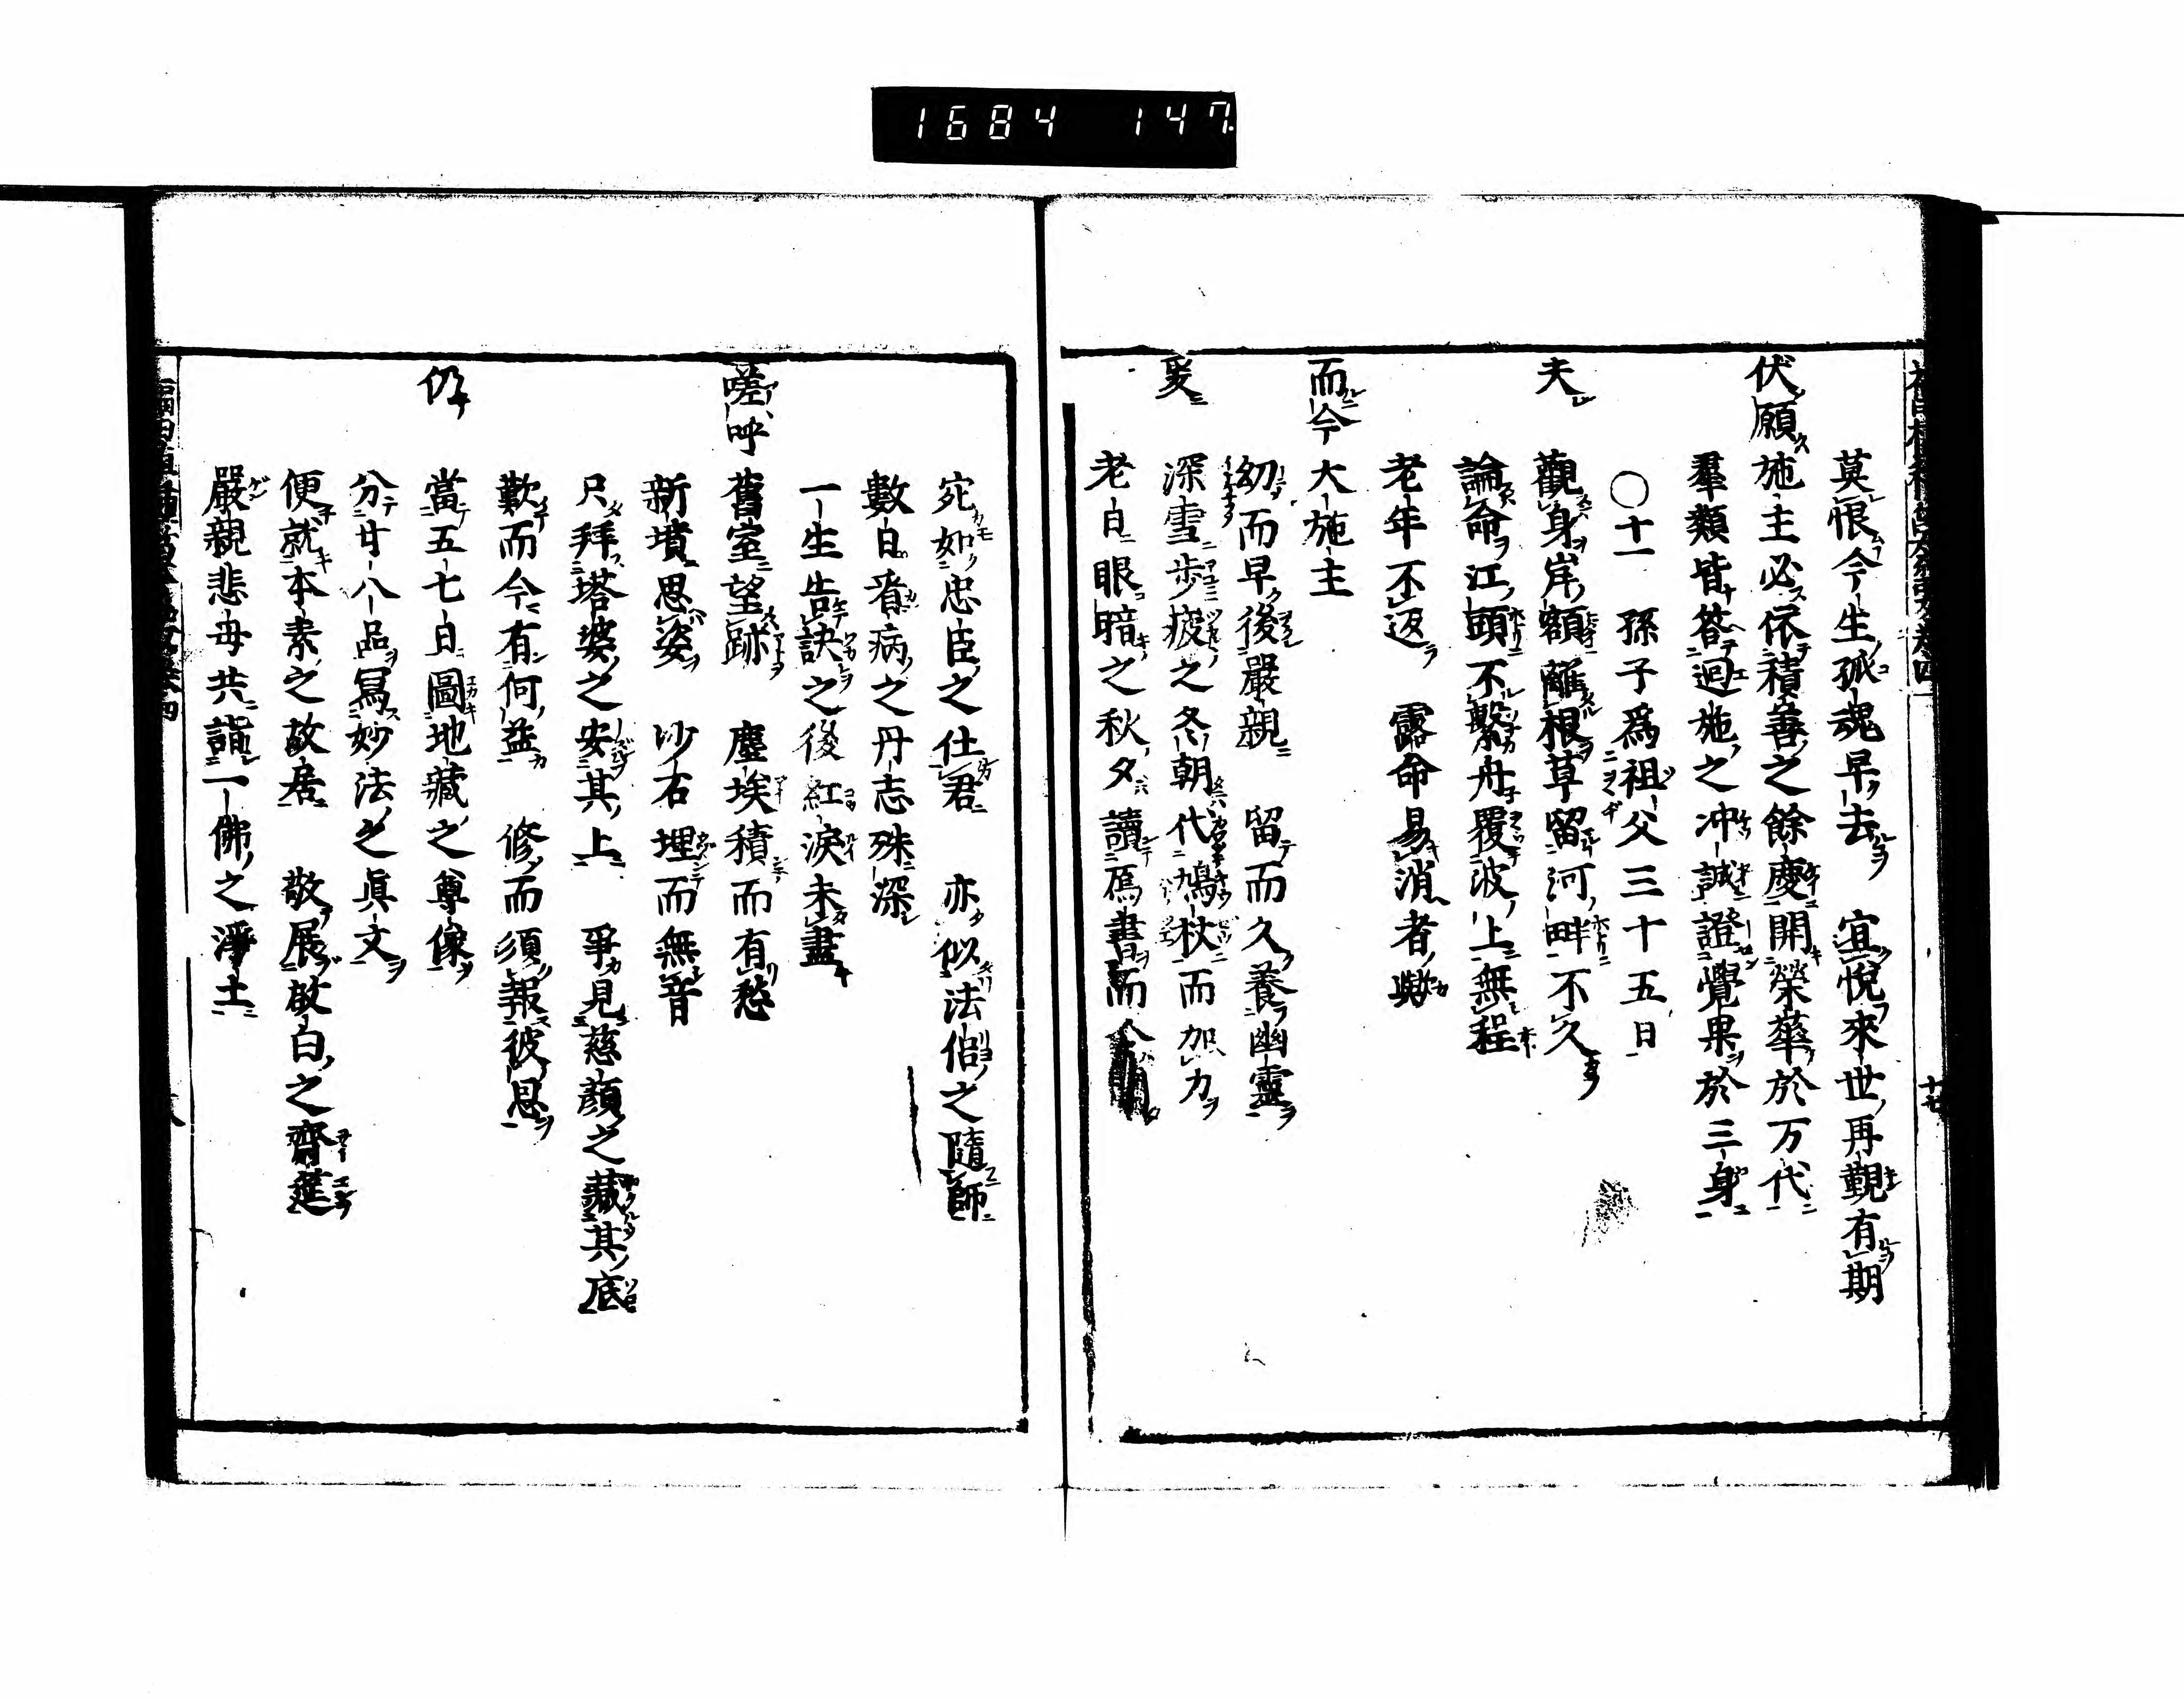 1684 147
莫恨今生孤魂早去 宜悅來世再覲有期
伏願 施主必依積善之餘慶開榮華於万代
羣類皆答迴施之冲誠證覺果於三身
○十一 孫子爲祖父三十五日
夫 觀身岸額離根草留河畔不久
論命江頭不繋舟覆波上無程
老年不返 露命易消者歟
而今 大施主
幼而早後嚴親 留而久養幽靈
爰 深雪步疲之冬朝代鳩杖而加力
老白眼暗之秋夕讀鴈書而令
宛如忠臣之仕君 亦似法侶之隨師
數日看病之丹志殊深
一生告訣之後紅淚未盡
嗟呼 舊室望跡 塵埃積而有愁
新墳思姿 沙石埋而無音
只拜塔婆之安其上 爭見慈顏之藏其底
歎而今有何益 修而須報彼恩
仍 當五七日圖地藏之尊像
分廿八品寫妙法之眞文
便就本素之故居 敬展啟白之齋筵
嚴親悲母共詣一佛之淨土